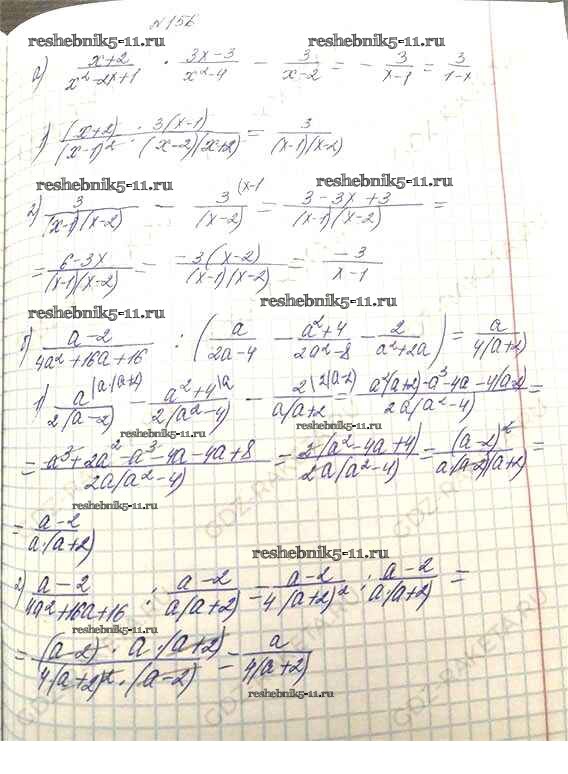 N 156
reshebnik5-11.ru reshebnik5-11.ru
а) (x+2)/(x²-2x+1) · (3x-3)/(x²-4) - 3/(x-2) = -3/(x-1) = 3/(1-x)
1) (x+2)/(x-1)² · 3(x-1)/((x-2)(x+2)) = 3/((x-1)(x-2))
reshebnik5-11.ru reshebnik5-11.ru
2) 3/((x-1)(x-2)) - 3/(x-2) (x-1 = (3-3x+3)/((x-1)(x-2)) =
= (6-3x)/((x-1)(x-2)) = -3(x-2)/((x-1)(x-2)) = -3/(x-1)
reshebnik5-11.ru reshebnik5-11.ru
(a-2)/(4a²+16a+16) : (a/(2a-4) - (a²+4)/(2a²-8) - 2/(a²+2a)) = a/(4(a+2))
1) a/(2(a-2)) - (a²+4)/(2(a²-4)) - 2/(a(a+2)) = (a²(a+2)-a³-4a-4(a-2))/(2a(a²-4)) =
reshebnik5-11.ru
= (a³+2a²-a³-4a-4a+8)/(2a(a²-4)) = 2(a²-4a+4)/(2a(a²-4)) = (a-2)²/(a(a-2)(a+2)) =
reshebnik5-11.ru
reshebnik5-11.ru
= (a-2)/(a·(a+2))
reshebnik5-11.ru
2) (a-2)/(4a²+16a+16) : (a-2)/(a(a+2)) = (a-2)/(4(a+2)²) : (a-2)/(a·(a+2)) =
reshebnik5-11.ru
= ((a-2)·a·(a+2))/(4(a+2)²·(a-2)) = a/(4(a+2))
reshebnik5-11.ru reshebnik5-11.ru